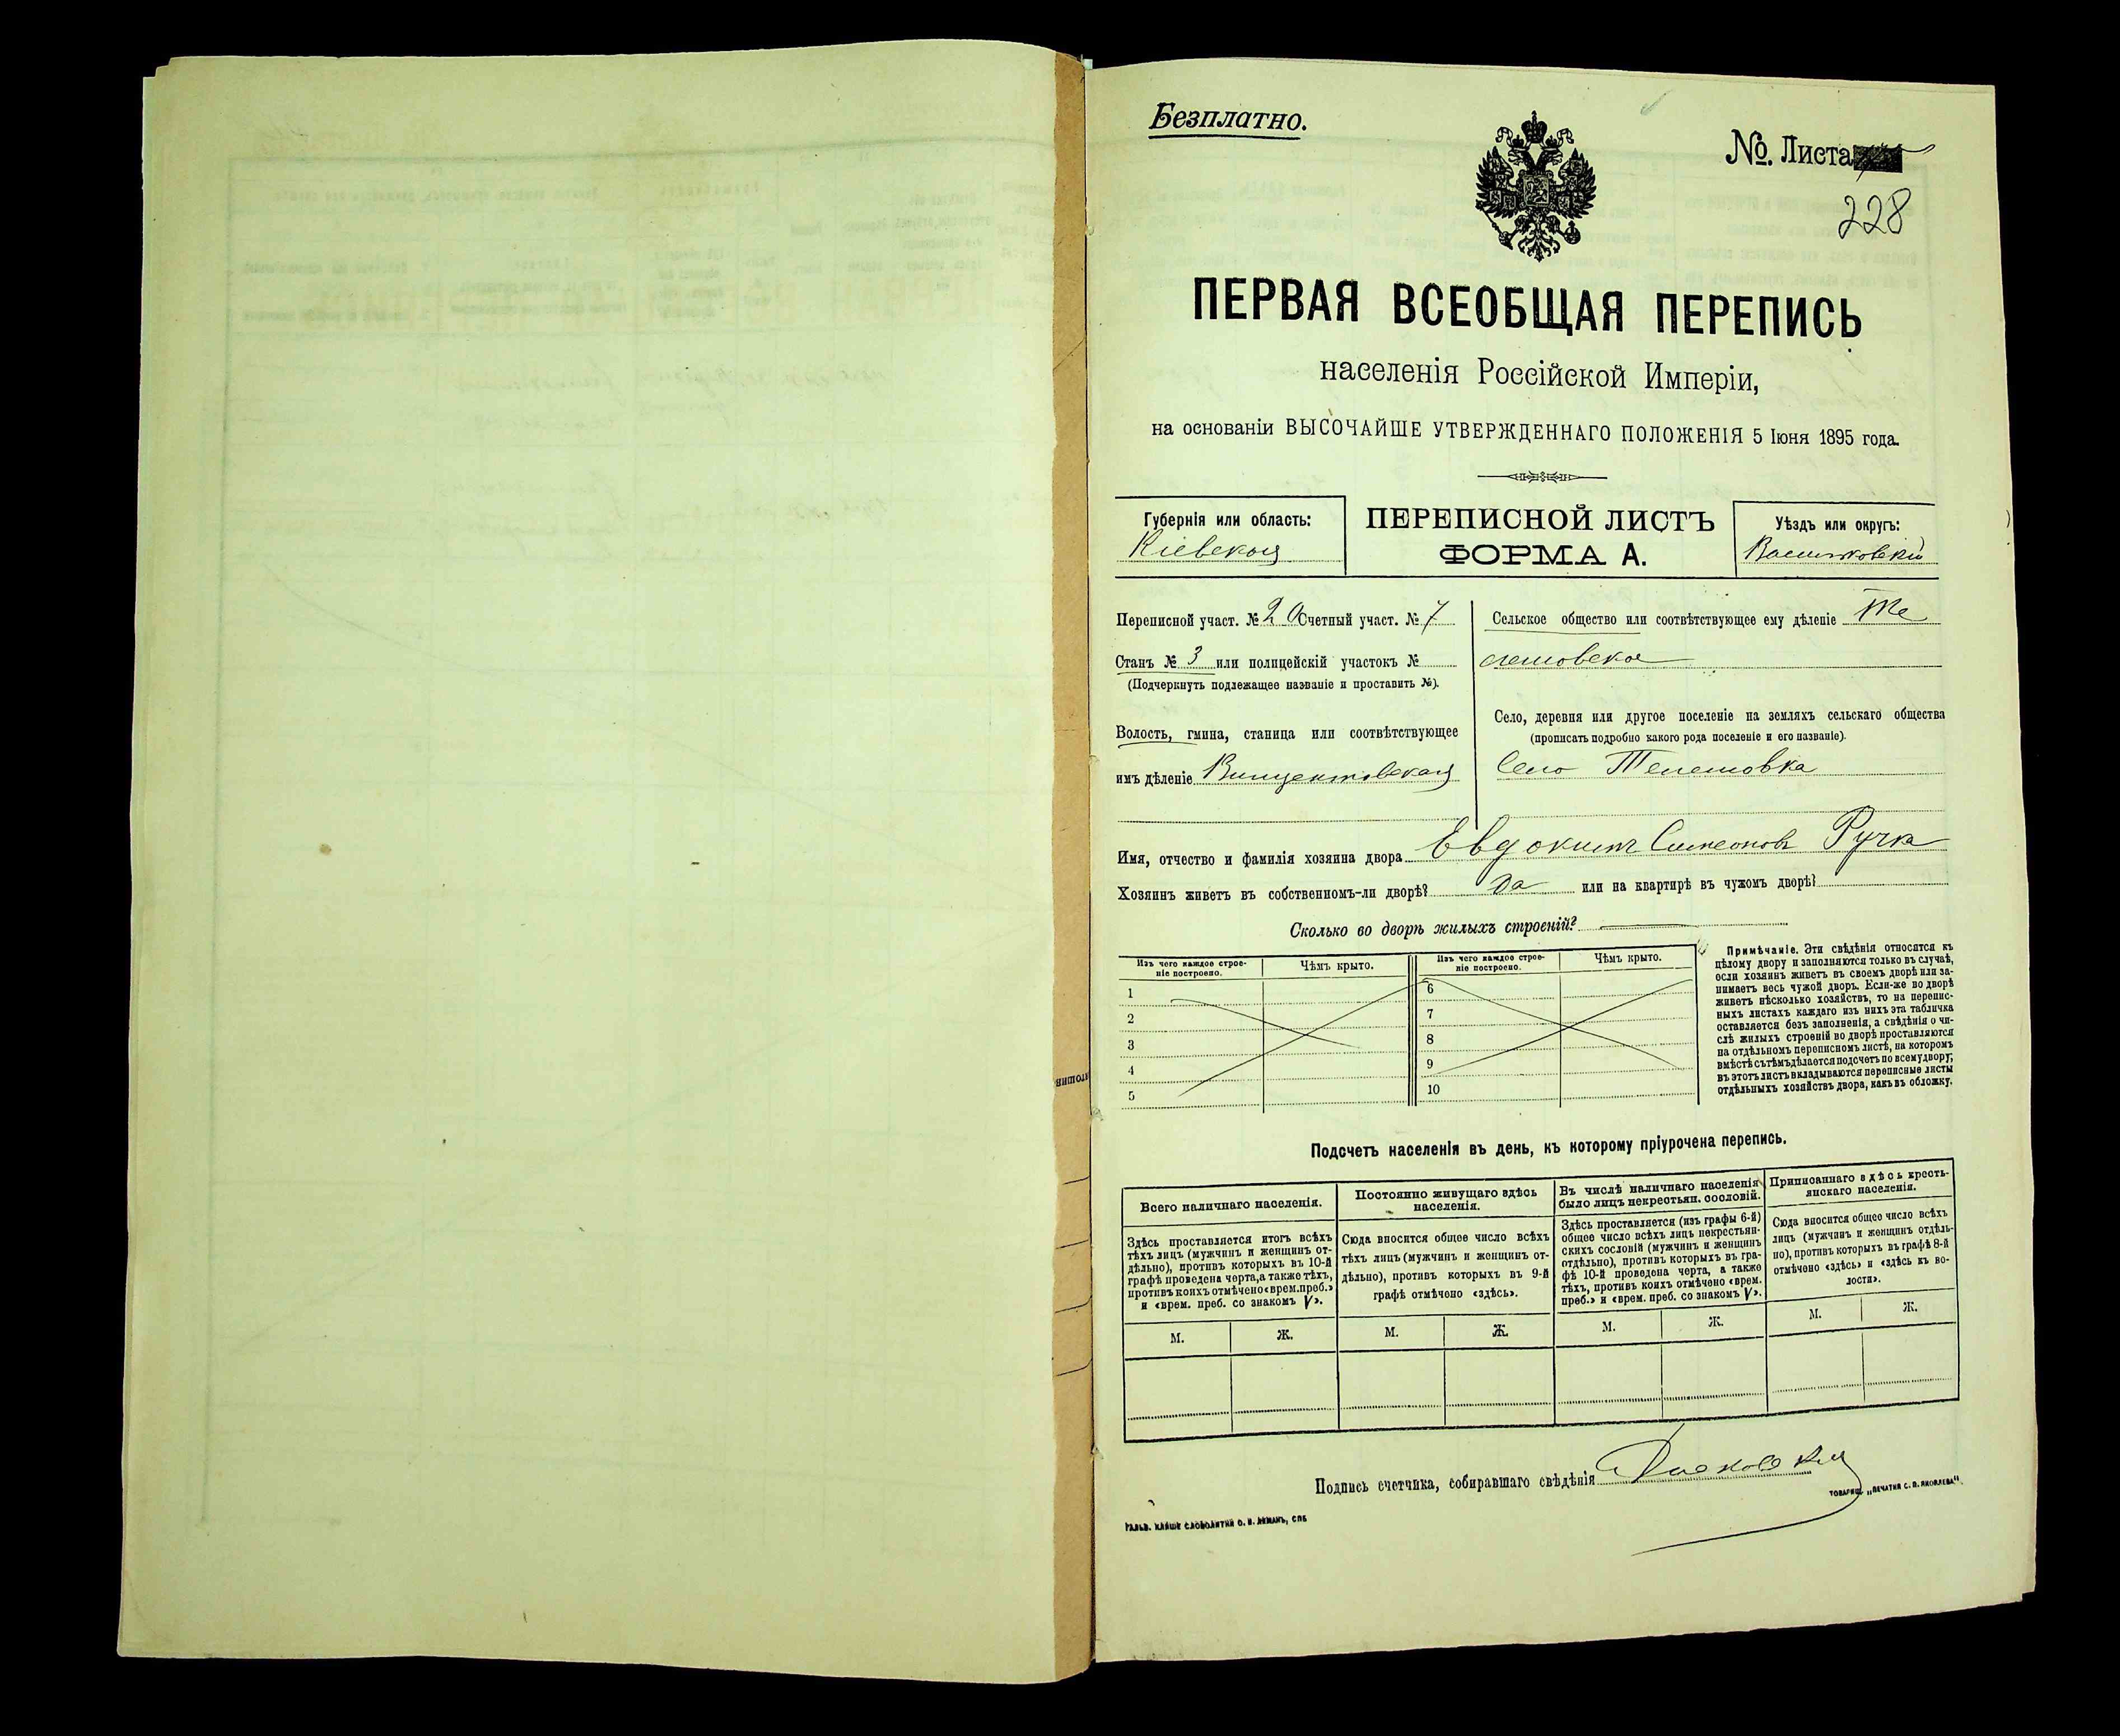 Безплатно.
№. Листа
228
ПЕРВАЯ ВСЕОБЩАЯ ПЕРЕПИСЬ
населенія Россійской Имперіи,
на основаніи ВЫСОЧАЙШЕ УТВЕРЖДЕННАГО ПОЛОЖЕНІЯ 5 Іюня 1895 года.
Губернія или область:
Кіевская
ПЕРЕПИСНОЙ ЛИСТЪ
ФОРМА А.
Уѣздъ или округъ:
Васильковскій
Переписной участ. № 20 Счетный участ. № 7
Станъ № 3 или полицейскій участокъ №
(Подчеркнуть подлежащее названіе и проставить №).
Волость, гмина, станица или соотвѣтствующее
имъ дѣленіе Винцентовская
Сельское общество или соотвѣтствующее ему дѣленіе Те
лешовское
Село, деревня или другое поселеніе на земляхъ сельскаго общества
(прописать подробно какого рода поселеніе и его названіе).
Село Телешовка
Имя, отчество и фамилія хозяина двора Евдокимъ Симеоновъ Ручка
Хозяинъ живетъ въ собственномъ-ли дворѣ? да или на квартирѣ въ чужомъ дворѣ?
Сколько во дворѣ жилыхъ строеній?
Изъ чего каждое строе-
ніе построено.
Чѣмъ крыто.
Изъ чего каждое строе-
ніе построено.
Чѣмъ крыто.
1
2
3
4
5
6
7
8
9
10
Примѣчаніе. Эти свѣдѣнія относятся къ
цѣлому двору и заполняются только въ случаѣ,
если хозяинъ живетъ въ своемъ дворѣ или за-
нимаетъ весь чужой дворъ. Если-же во дворѣ
живетъ нѣсколько хозяйствъ, то на перепис-
ныхъ листахъ каждаго изъ нихъ эта табличка
оставляется безъ заполненія, а свѣдѣнія о чи-
слѣ жилыхъ строеній во дворѣ проставляются
на отдѣльномъ переписномъ листѣ, на которомъ
вмѣстѣ съ тѣмъ дѣлается подсчетъ по всему двору;
въ этотъ листъ вкладываются переписные листы
отдѣльныхъ хозяйствъ двора, какъ въ обложку.
Подсчетъ населенія въ день, къ которому пріурочена перепись.
Всего наличнаго населенія.
Здѣсь проставляется итогъ всѣхъ
тѣхъ лицъ (мужчинъ и женщинъ от-
дѣльно), противъ которыхъ въ 10-й
графѣ проведена черта, а также тѣхъ,
противъ коихъ отмѣчено «врем. преб.»
и «врем. преб. со знакомъ V».
М.
Ж.
Постоянно живущаго здѣсь
населенія.
Сюда вносится общее число всѣхъ
тѣхъ лицъ (мужчинъ и женщинъ от-
дѣльно), противъ которыхъ въ 9-й
графѣ отмѣчено «здѣсь».
М.
Ж.
Въ числѣ наличнаго населенія
было лицъ некрестьян. сословій.
Здѣсь проставляется (изъ графы 6-й)
общее число всѣхъ лицъ некрестьян-
скихъ сословій (мужчинъ и женщинъ
отдѣльно), противъ которыхъ въ гра-
фѣ 10-й проведена черта, а также
тѣхъ, противъ коихъ отмѣчено «врем.
преб.» и «врем. преб. со знакомъ V».
М.
Ж.
Приписаннаго здѣсь кресть-
янскаго населенія.
Сюда вносится общее число всѣхъ
лицъ (мужчинъ и женщинъ отдѣль-
но), противъ которыхъ въ графѣ 8-й
отмѣчено «здѣсь» и «здѣсь къ во-
лости».
М.
Ж.
Подпись счетчика, собиравшаго свѣдѣнія
ТОВАРИЩ. „ПЕЧАТНЯ С. П. ЯКОВЛЕВА".
ГАЛЬВ. КЛИШЕ СЛОВОЛИТНИ О. И. ЛЕМАНЪ, СПБ